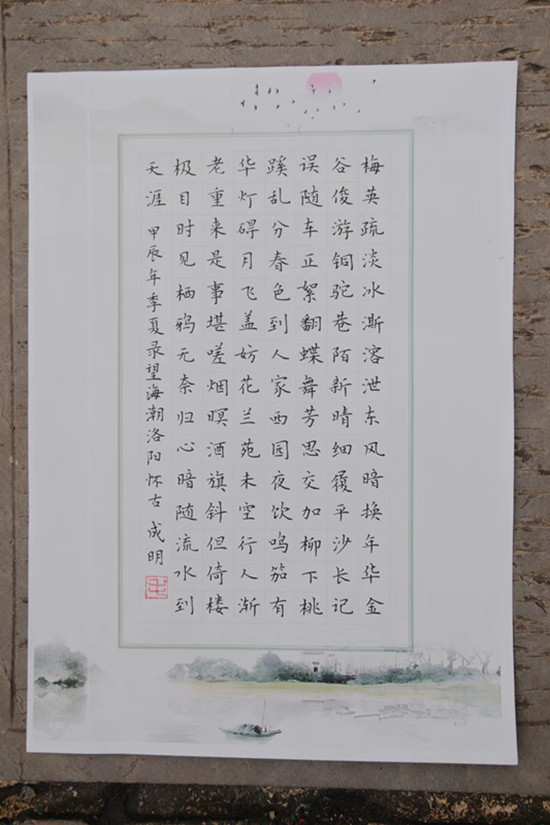 梅英疏淡冰澌溶泄东风暗换年华金
谷俊游铜驼巷陌新晴细履平沙长记
误随车正絮翻蝶舞芳思交加柳下桃
蹊乱分春色到人家西园夜饮鸣笳有
华灯碍月飞盖妨花兰苑未空行人渐
老重来是事堪嗟烟暝酒旗斜但倚楼
极目时见栖鸦无奈归心暗随流水到
天涯 甲辰年季夏录望海潮洛阳怀古 成明